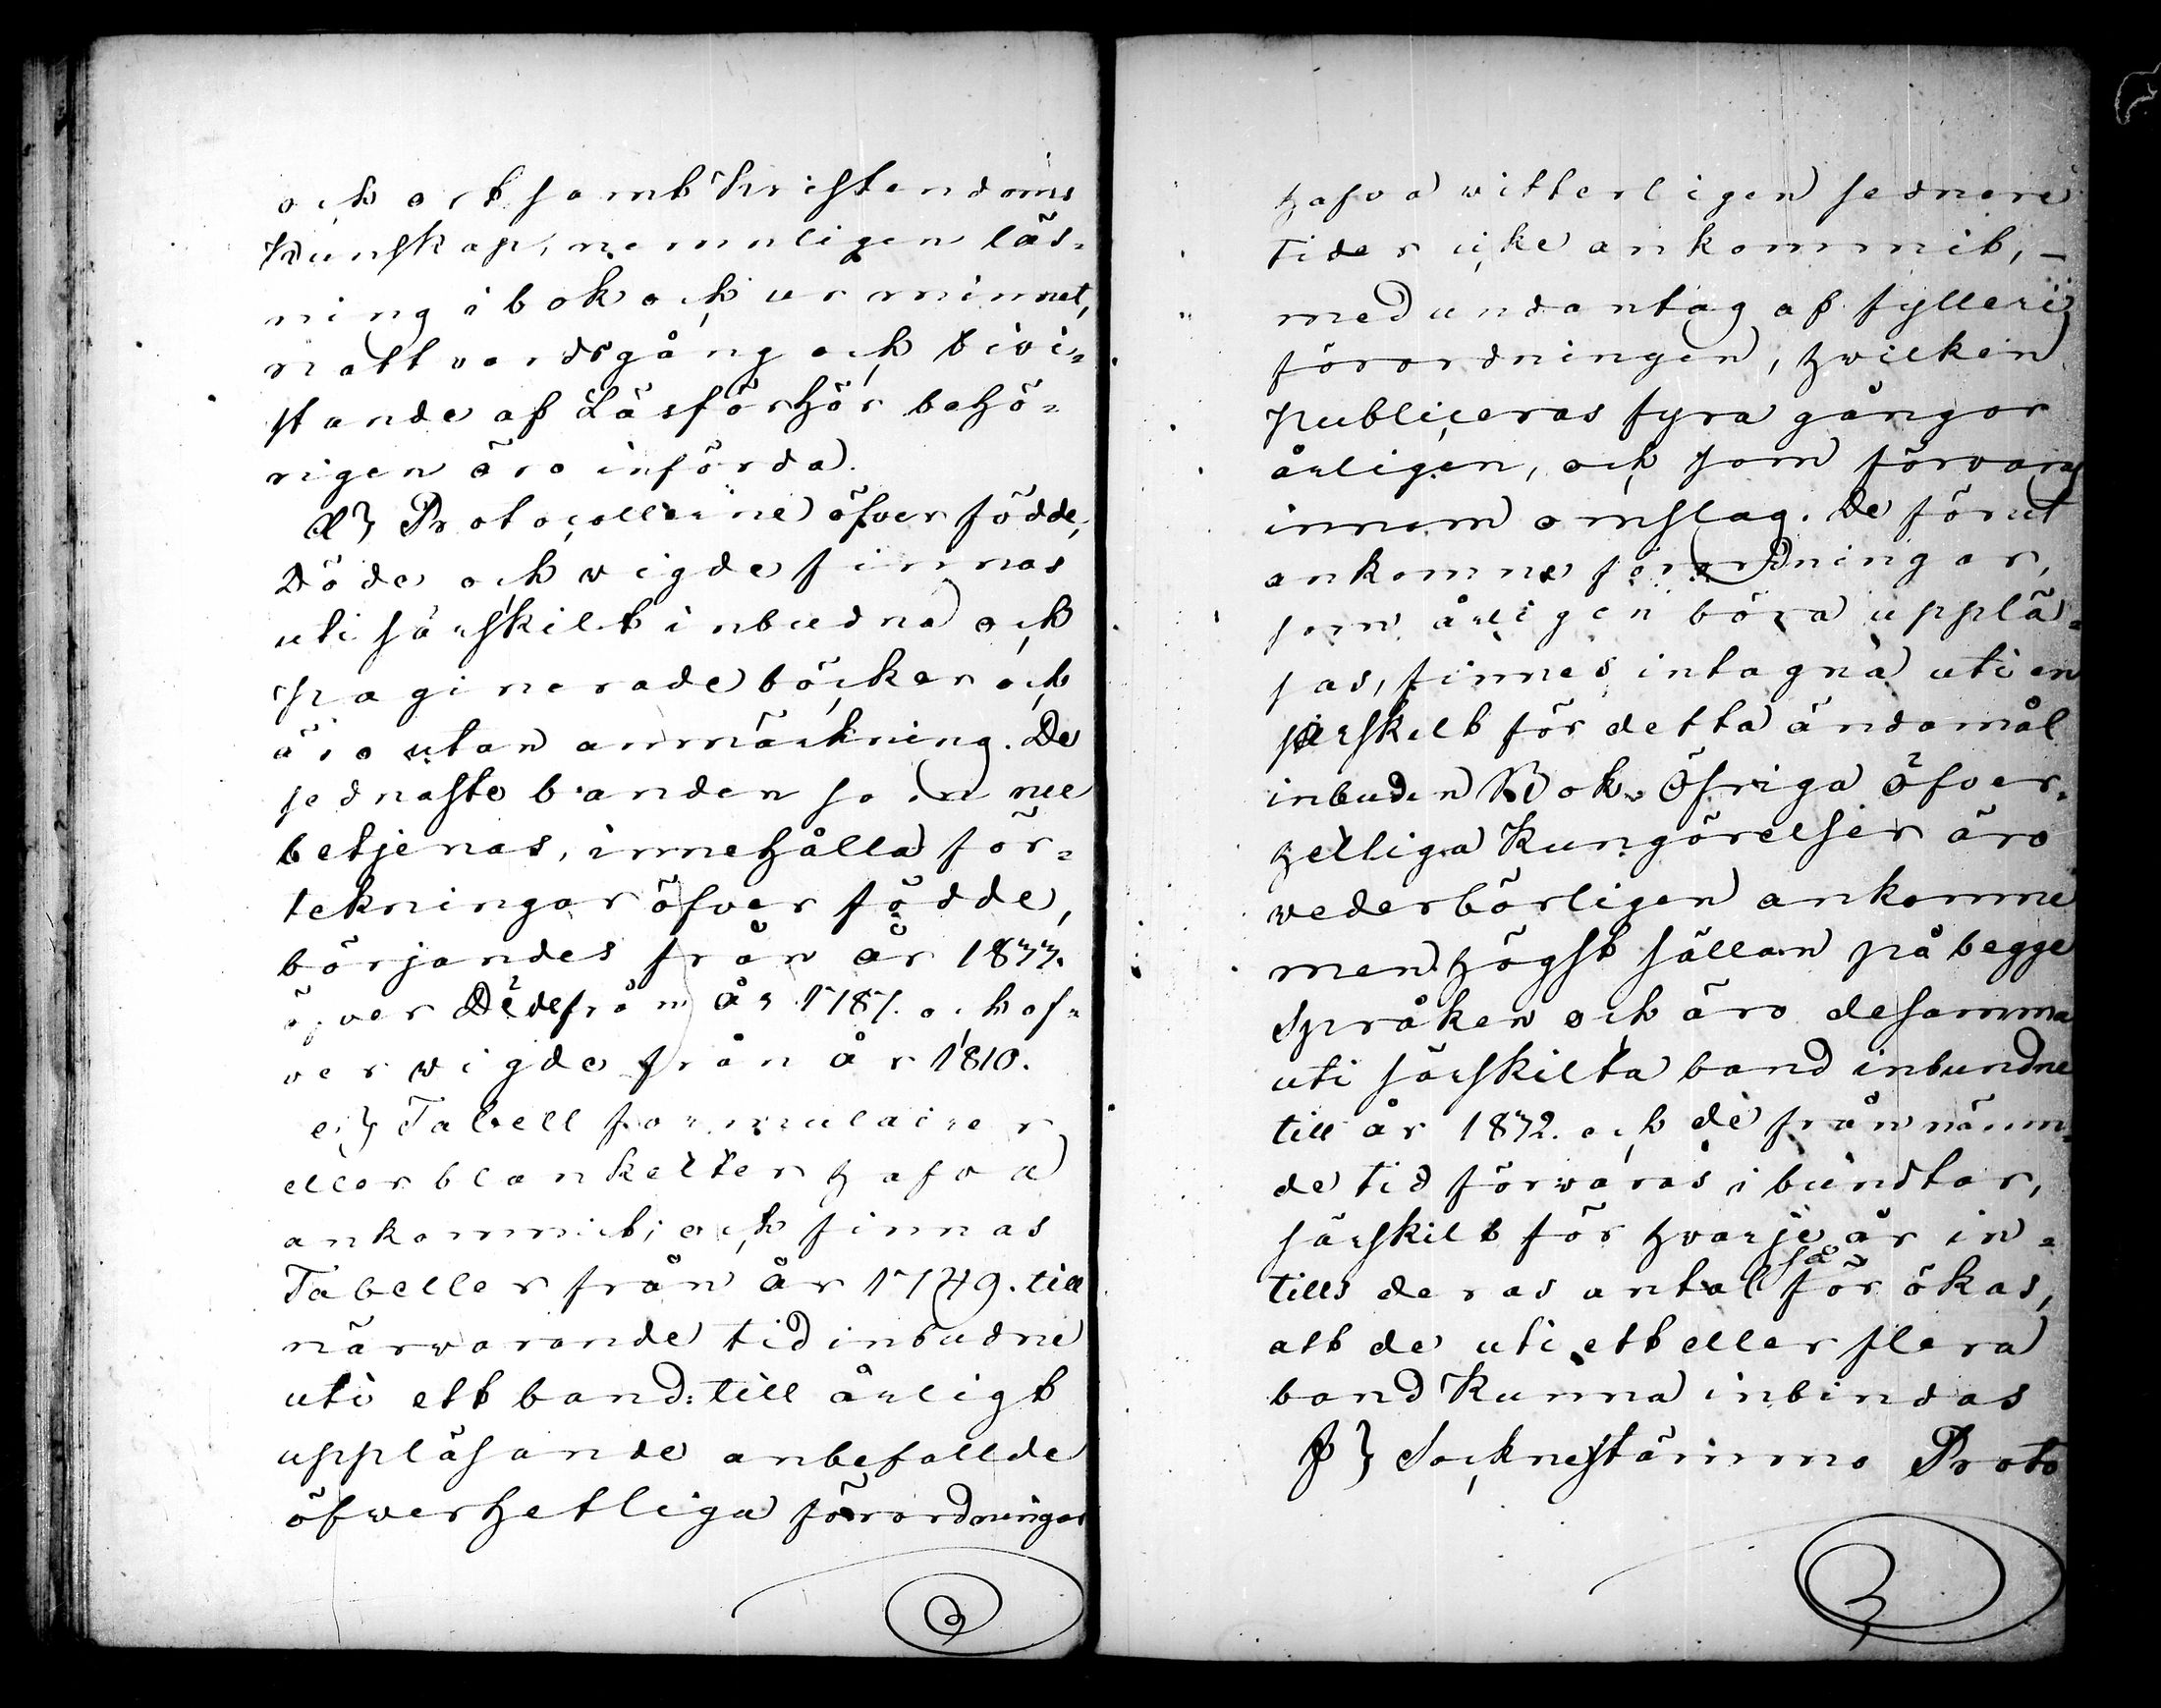 och ort samt Kristendoms
Kunskap, nemnligen läs-
ning i bok och ur minnet,
nattvardsgång och bivi-
stande af Läsförhör behö-
rigen äro införda.
d} Protocollerne öfver födde,
Döde och wigde finnas
uti särskilt inbudna och
paginerade böcker och
äro utan anmärkning. De
sednaste banden som nu
betjenas, innehålla för-
tekningar öfver födde,
börjandes från år 1833.
öfver Döde från år 1787. och öf-
ver wigde från år 1810.
e} Tabell formulairer
eller blanketter hafva
ankommit; och finnas
Tabeller från år 1749. till
närvarande tid inbudne
uti ett band: till årligt
uppläsande anbefallde
öfwerhetliga förordningar
hafva witterligen sednare
tider icke ankommit, –
med undantag af fylleri
förordningen, hvilken
publiceras fyra gångor
årligen, och som förvaras
innom omslag. De förut
ankomne förordningar,
som årligen böra upplä-
sas, finnes intagna uti en
särskilt för detta ändamål
inbuden Bok. Öfriga öfver-
hetliga Kungörelser äro
wederbörligen ankomne
men högst sällan på begge
Språken och äro desamma
uti särskilta band inbundne
till år 1832. och de från nämn-
de tid förvaras i bundtar,
särskilt för hvarje år in-
tills deras antal så för ökas,
att de uti ett eller flera
band Kunna inbindas
f} Socknestämmo Proto